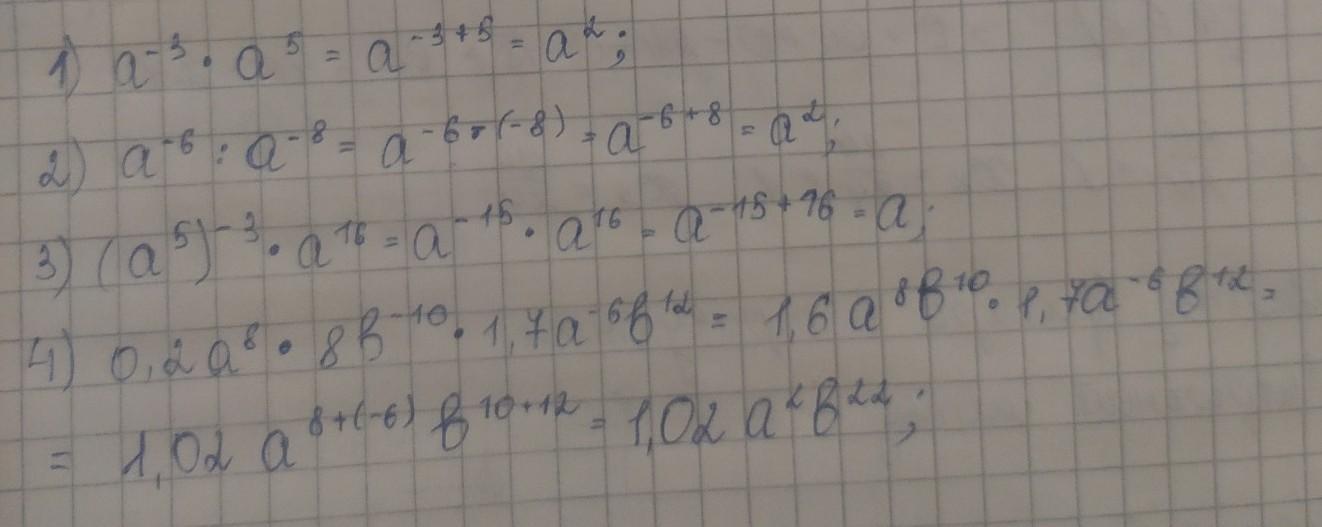 1) a⁻³ · a⁵ = a⁻³⁺⁵ = a²;
2) a⁻⁶ : a⁻⁸ = a⁻⁶⁻⁽⁻⁸⁾ = a⁻⁶⁺⁸ = a²;
3) (a⁵)⁻³ · a¹⁶ = a⁻¹⁵ · a¹⁶ = a⁻¹⁵⁺¹⁶ = a;
4) 0,2a⁸ · 8в⁻¹⁰ · 1,7a⁻⁶в¹² = 1,6a⁸в¹⁰ · 1,7a⁻⁶в¹² =
= 1,02 a⁸⁺⁽⁻⁶⁾ в¹⁰⁺¹² = 1,02 a²в²²;